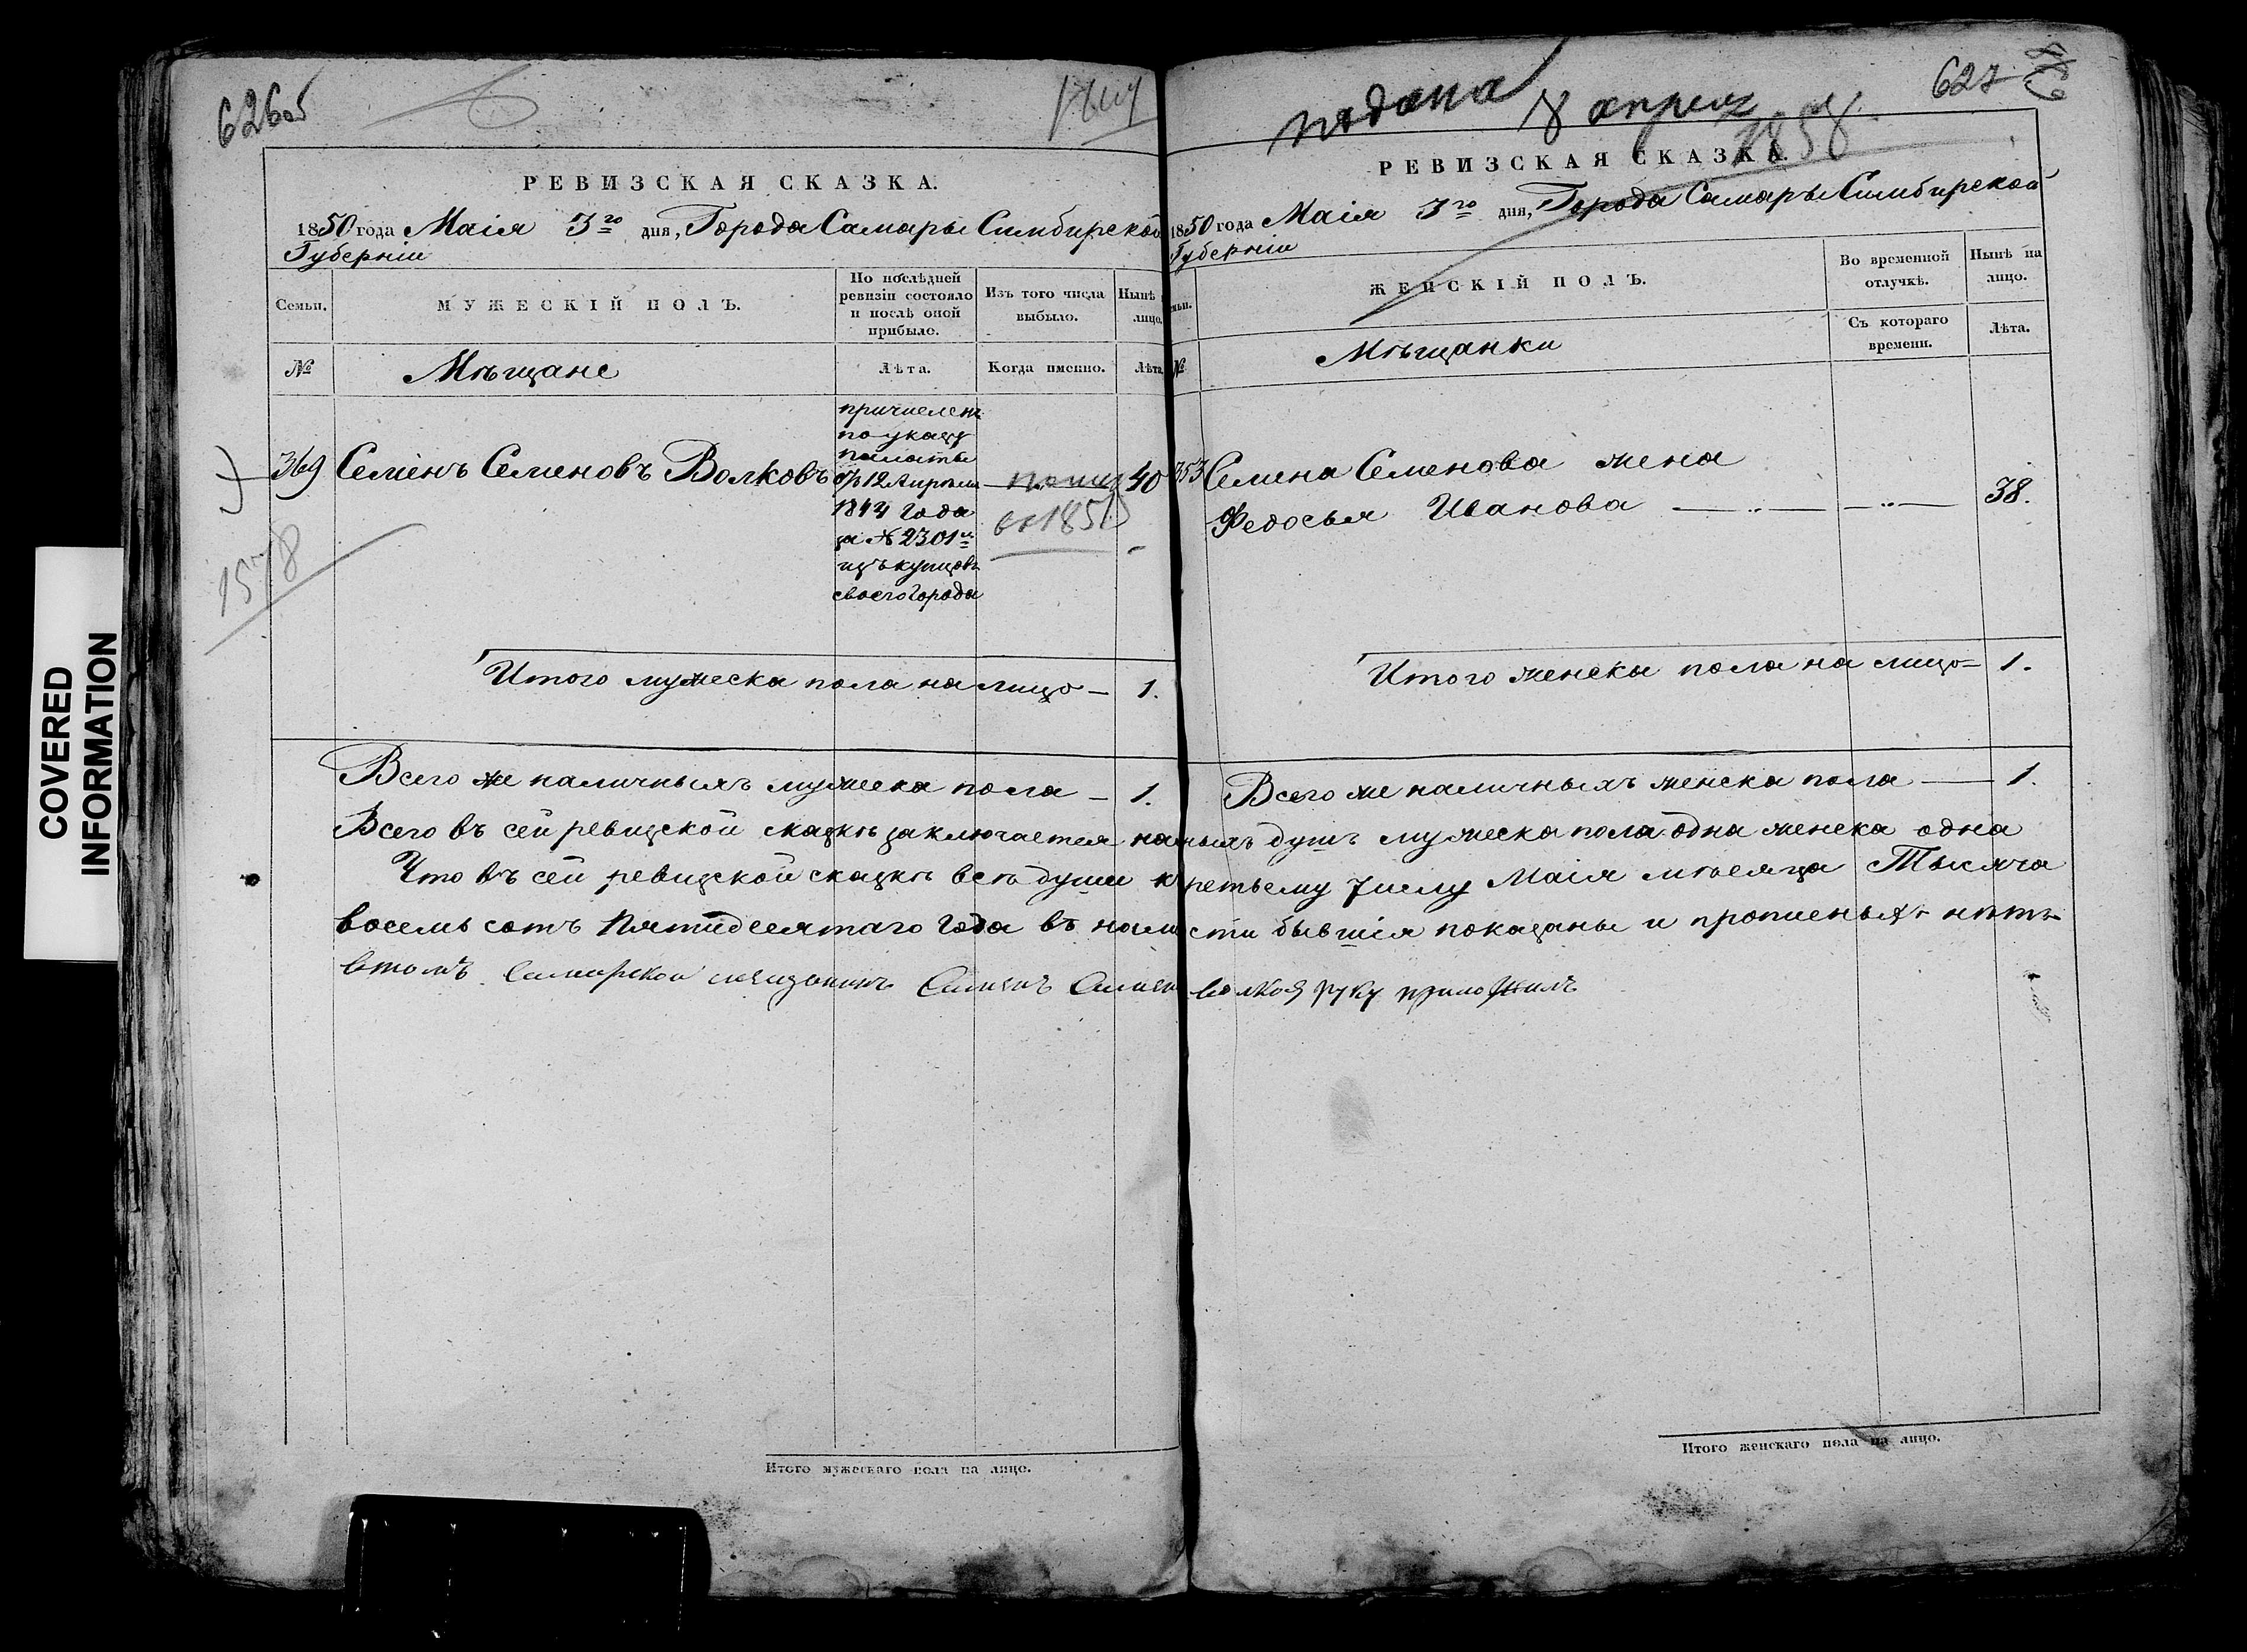 626об
РЕВИЗСКАЯ СКАЗКА.
1850 года Маія 3го дня, Города Самары Симбирской
Губерніи
Семьи.
МУЖЕСКІЙ ПОЛЪ.
По послѣдней
ревизіи состояло
и послѣ оной
прибыло.
Изъ того числа
выбыло.
Нынѣ
лицо.
№
Мѣщане
Лѣта.
Когда именно.
Лѣта
369 Семенъ Семеновъ Волковъ
причислен
по указу
палаты
12 Апреля
1844 Года
за № 2301м
изъ купцовъ
своего города
40
1578
Итого мужеска пола на лицо — 1.
Всего же наличныхъ мужеска пола — 1.
Итого мужескаго пола на лицо.
подана 8 апреля
1858
627
РЕВИЗСКАЯ СКАЗКА.
1850 года Маія 3го дня, Города Самары Симбирской
Губерніи
ЖЕНСКІЙ ПОЛЪ.
Во временной
отлучкѣ.
Нынѣ на
лицо.
Съ котораго
времени.
Лѣта.
№
Мѣщанки
353 Семена Семенова жена
Федосья Иванова — „ — — „ — 38.
Итого женска пола на лицо — 1.
Всего же наличныхъ женска пола — 1.
Всего въ сей ревизской сказкѣ заключается наличныхъ душъ мужеска пола одна женска одна
Что въ сей ревизской сказкѣ всѣ души к третьему числу Маія мѣсяца Тысяча
восемь сотъ Пятидесятаго Года въ наличности бывшія показаны и прописныхъ нѣтъ
втомъ Самарской мещанинъ Семенъ Семен волков руку приложилъ
Итого женскаго пола на лицо.
COVERED
INFORMATION